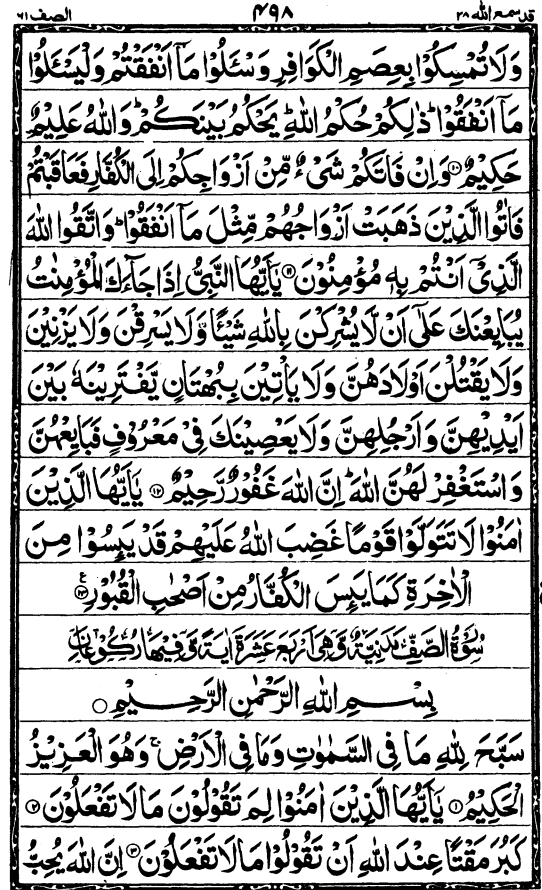 قد سمع الله ٢٨ ٤٩٨ الصف ٦١
وَلَا تُمْسِكُوْا بِعِصَمِ الْكَوَافِرِ وَسْـَٔلُوْا مَاۤ اَنْفَقْتُمْ وَلْيَسْـَٔلُوْا
مَاۤ اَنْفَقُوْا ؕ ذٰلِكُمْ حُكْمُ اللّٰهِ ؕ يَحْكُمُ بَيْنَكُمْ ؕ وَاللّٰهُ عَلِيْمٌ
حَكِيْمٌ ۝١٠ وَاِنْ فَاتَكُمْ شَيْءٌ مِّنْ اَزْوَاجِكُمْ اِلَى الْكُفَّارِ فَعَاقَبْتُمْ
فَاٰتُوا الَّذِيْنَ ذَهَبَتْ اَزْوَاجُهُمْ مِّثْلَ مَاۤ اَنْفَقُوْا ؕ وَاتَّقُوا اللّٰهَ
الَّذِيْۤ اَنْتُمْ بِهٖ مُؤْمِنُوْنَ ۝١١ يٰۤاَيُّهَا النَّبِيُّ اِذَا جَآءَكَ الْمُؤْمِنٰتُ
يُبَايِعْنَكَ عَلٰۤى اَنْ لَّا يُشْرِكْنَ بِاللّٰهِ شَيْـًٔا وَّلَا يَسْرِقْنَ وَلَا يَزْنِيْنَ
وَلَا يَقْتُلْنَ اَوْلَادَهُنَّ وَلَا يَاْتِيْنَ بِبُهْتَانٍ يَّفْتَرِيْنَهٗ بَيْنَ
اَيْدِيْهِنَّ وَاَرْجُلِهِنَّ وَلَا يَعْصِيْنَكَ فِيْ مَعْرُوْفٍ فَبَايِعْهُنَّ
وَاسْتَغْفِرْ لَهُنَّ اللّٰهَ ؕ اِنَّ اللّٰهَ غَفُوْرٌ رَّحِيْمٌ ۝١٢ يٰۤاَيُّهَا الَّذِيْنَ
اٰمَنُوْا لَا تَتَوَلَّوْا قَوْمًا غَضِبَ اللّٰهُ عَلَيْهِمْ قَدْ يَىِٕسُوْا مِنَ
الْاٰخِرَةِ كَمَا يَىِٕسَ الْكُفَّارُ مِنْ اَصْحٰبِ الْقُبُوْرِ ۝١٣ ع
سُوْرَةُ الصَّفِّ مَدَنِيَّةٌ وَّهِيَ اَرْبَعَ عَشَرَةَ اٰيَةً وَّفِيْهَا رُكُوْعَانِ
بِسْمِ اللّٰهِ الرَّحْمٰنِ الرَّحِيْمِ ۝
سَبَّحَ لِلّٰهِ مَا فِي السَّمٰوٰتِ وَمَا فِي الْاَرْضِ ۚ وَهُوَ الْعَزِيْزُ
الْحَكِيْمُ ۝١ يٰۤاَيُّهَا الَّذِيْنَ اٰمَنُوْا لِمَ تَقُوْلُوْنَ مَا لَا تَفْعَلُوْنَ ۝٢
كَبُرَ مَقْتًا عِنْدَ اللّٰهِ اَنْ تَقُوْلُوْا مَا لَا تَفْعَلُوْنَ ۝٣ اِنَّ اللّٰهَ يُحِبُّ